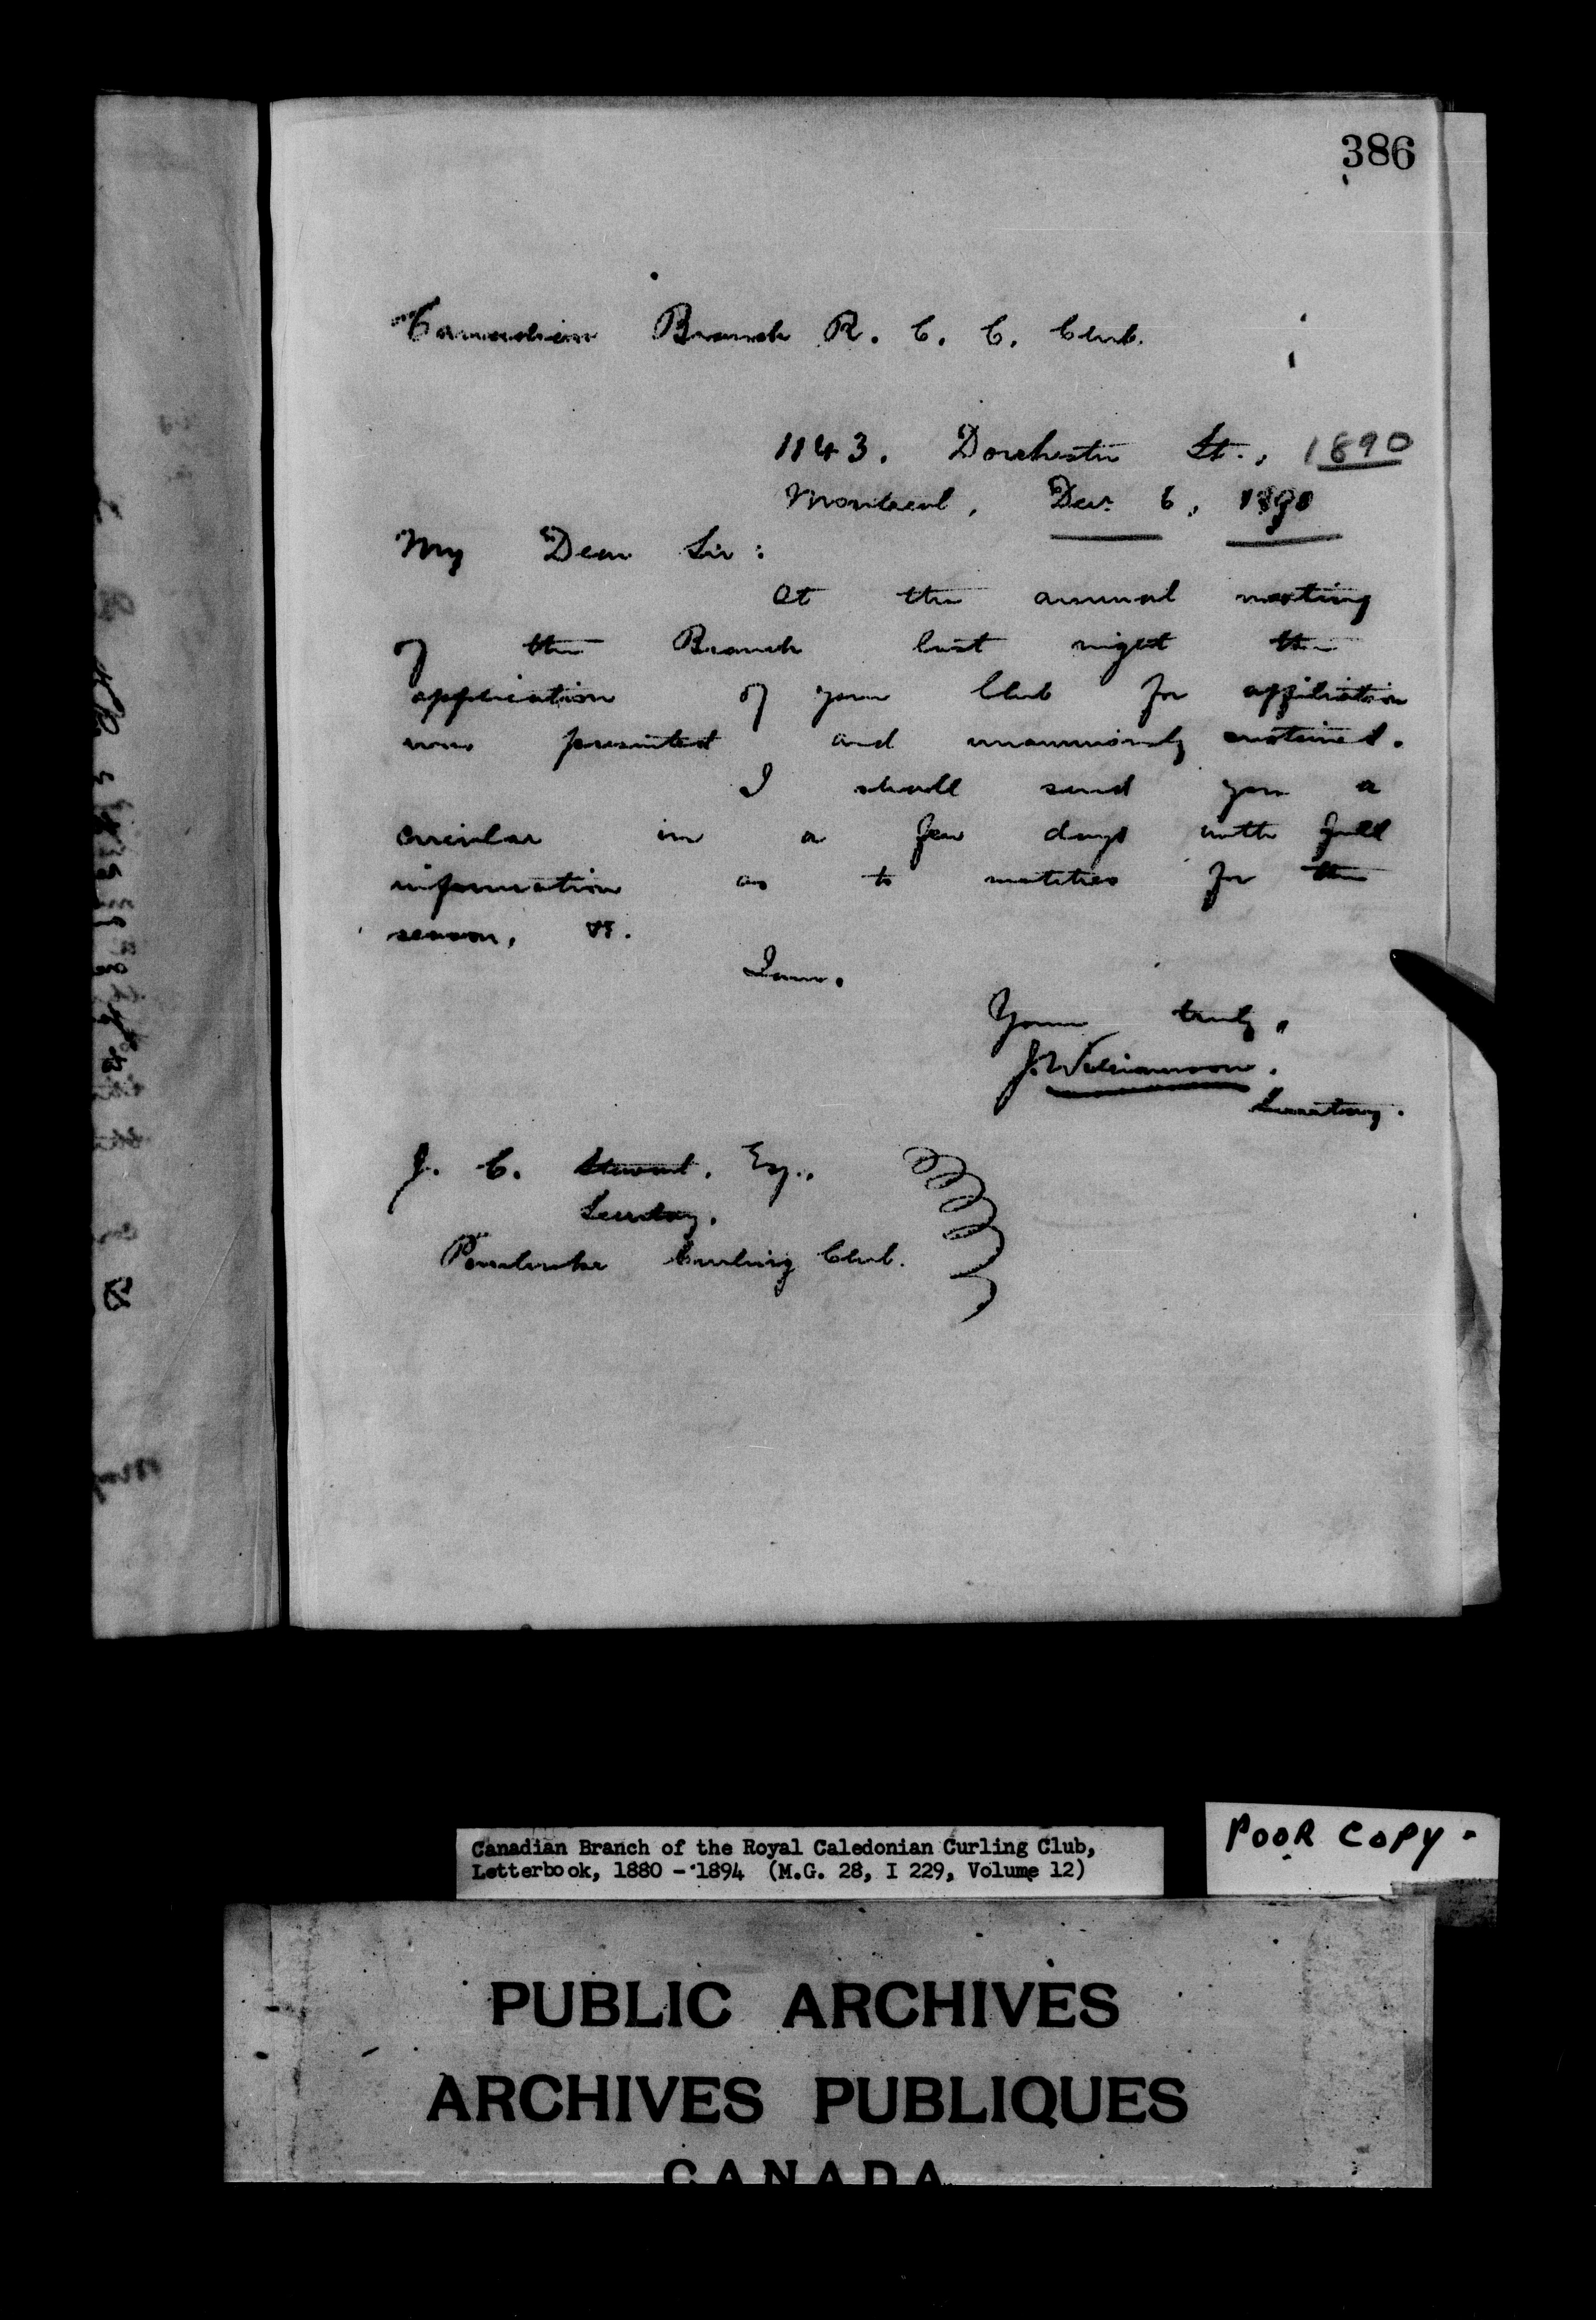 386
Canadian Branch R. C. C. Club.
1143. Dorchester St., 1890
Montreal, Dec. 6, 1890
My Dear Sir:
At the annual meeting
of the Branch last night the
application of your Club for affiliation
was presented and unanimously
I shall send you a
circular in a few days with full
information as to matches for the
season, &c.
I am.
Yours truly,
J. Williamson.
Secretary.
J. C. Stewart, Esq.,
Secretary,
Pembroke Curling Club.
Canadian Branch of the Royal Caledonian Curling Club,
Letterbook, 1880 - 1894 (M.G. 28, I 229, Volume 12)
POOR COPY -
PUBLIC ARCHIVES
ARCHIVES PUBLIQUES
CANADA